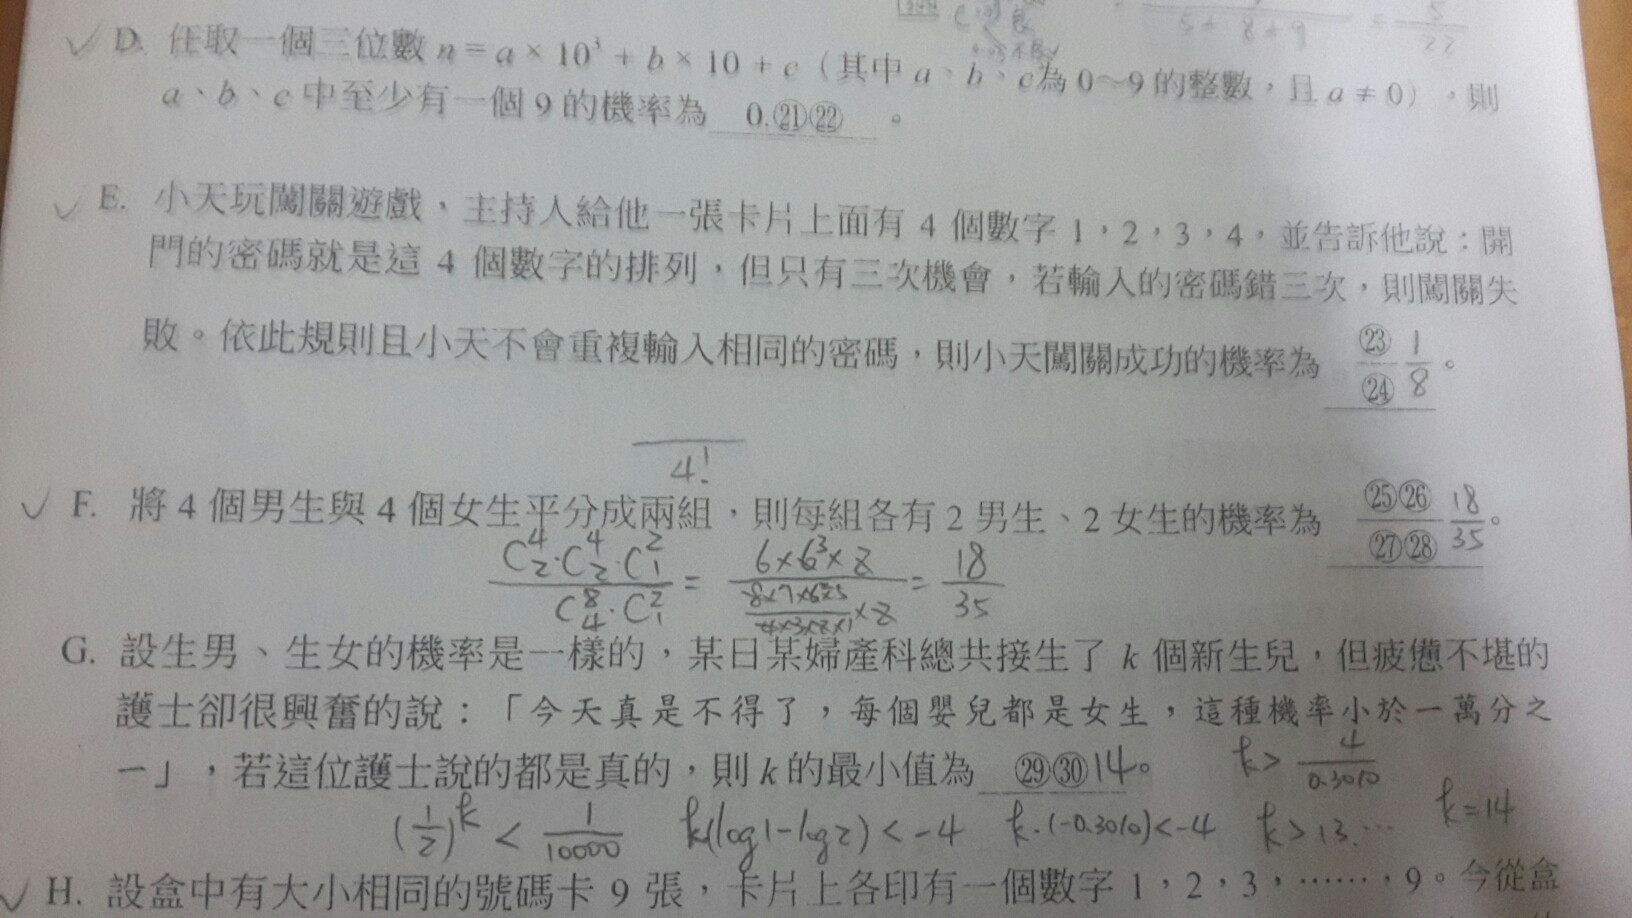 D. 任取一個三位數 n = a × 10³ + b × 10 + c（其中 a、b、c為 0～9 的整數，且 a ≠ 0），則
a、b、c 中至少有一個 9 的機率為 0.㉑㉒ 。
E. 小天玩闖關遊戲，主持人給他一張卡片上面有 4 個數字 1，2，3，4，並告訴他說：開
門的密碼就是這 4 個數字的排列，但只有三次機會，若輸入的密碼錯三次，則闖關失
敗。依此規則且小天不會重複輸入相同的密碼，則小天闖關成功的機率為 ㉓/㉔ 1/8 。
4!
F. 將 4 個男生與 4 個女生平分成兩組，則每組各有 2 男生、2 女生的機率為 ㉕㉖/㉗㉘ 18/35 。
C⁴₂·C⁴₂·C²₁ / C⁸₄·C²₁ = 6×6×2 / (8×7×6×5 / 4×3×2×1 ×2) = 18/35
G. 設生男、生女的機率是一樣的，某日某婦產科總共接生了 k 個新生兒，但疲憊不堪的
護士卻很興奮的說：「今天真是不得了，每個嬰兒都是女生，這種機率小於一萬分之
一」，若這位護士說的都是真的，則 k 的最小值為 ㉙㉚ 14。 k > 4/0.3010
(1/2)^k < 1/10000 k(log1-log2) < -4 k·(-0.3010) < -4 k > 13.… k=14
H. 設盒中有大小相同的號碼卡 9 張，卡片上各印有一個數字 1，2，3，……，9。今從盒